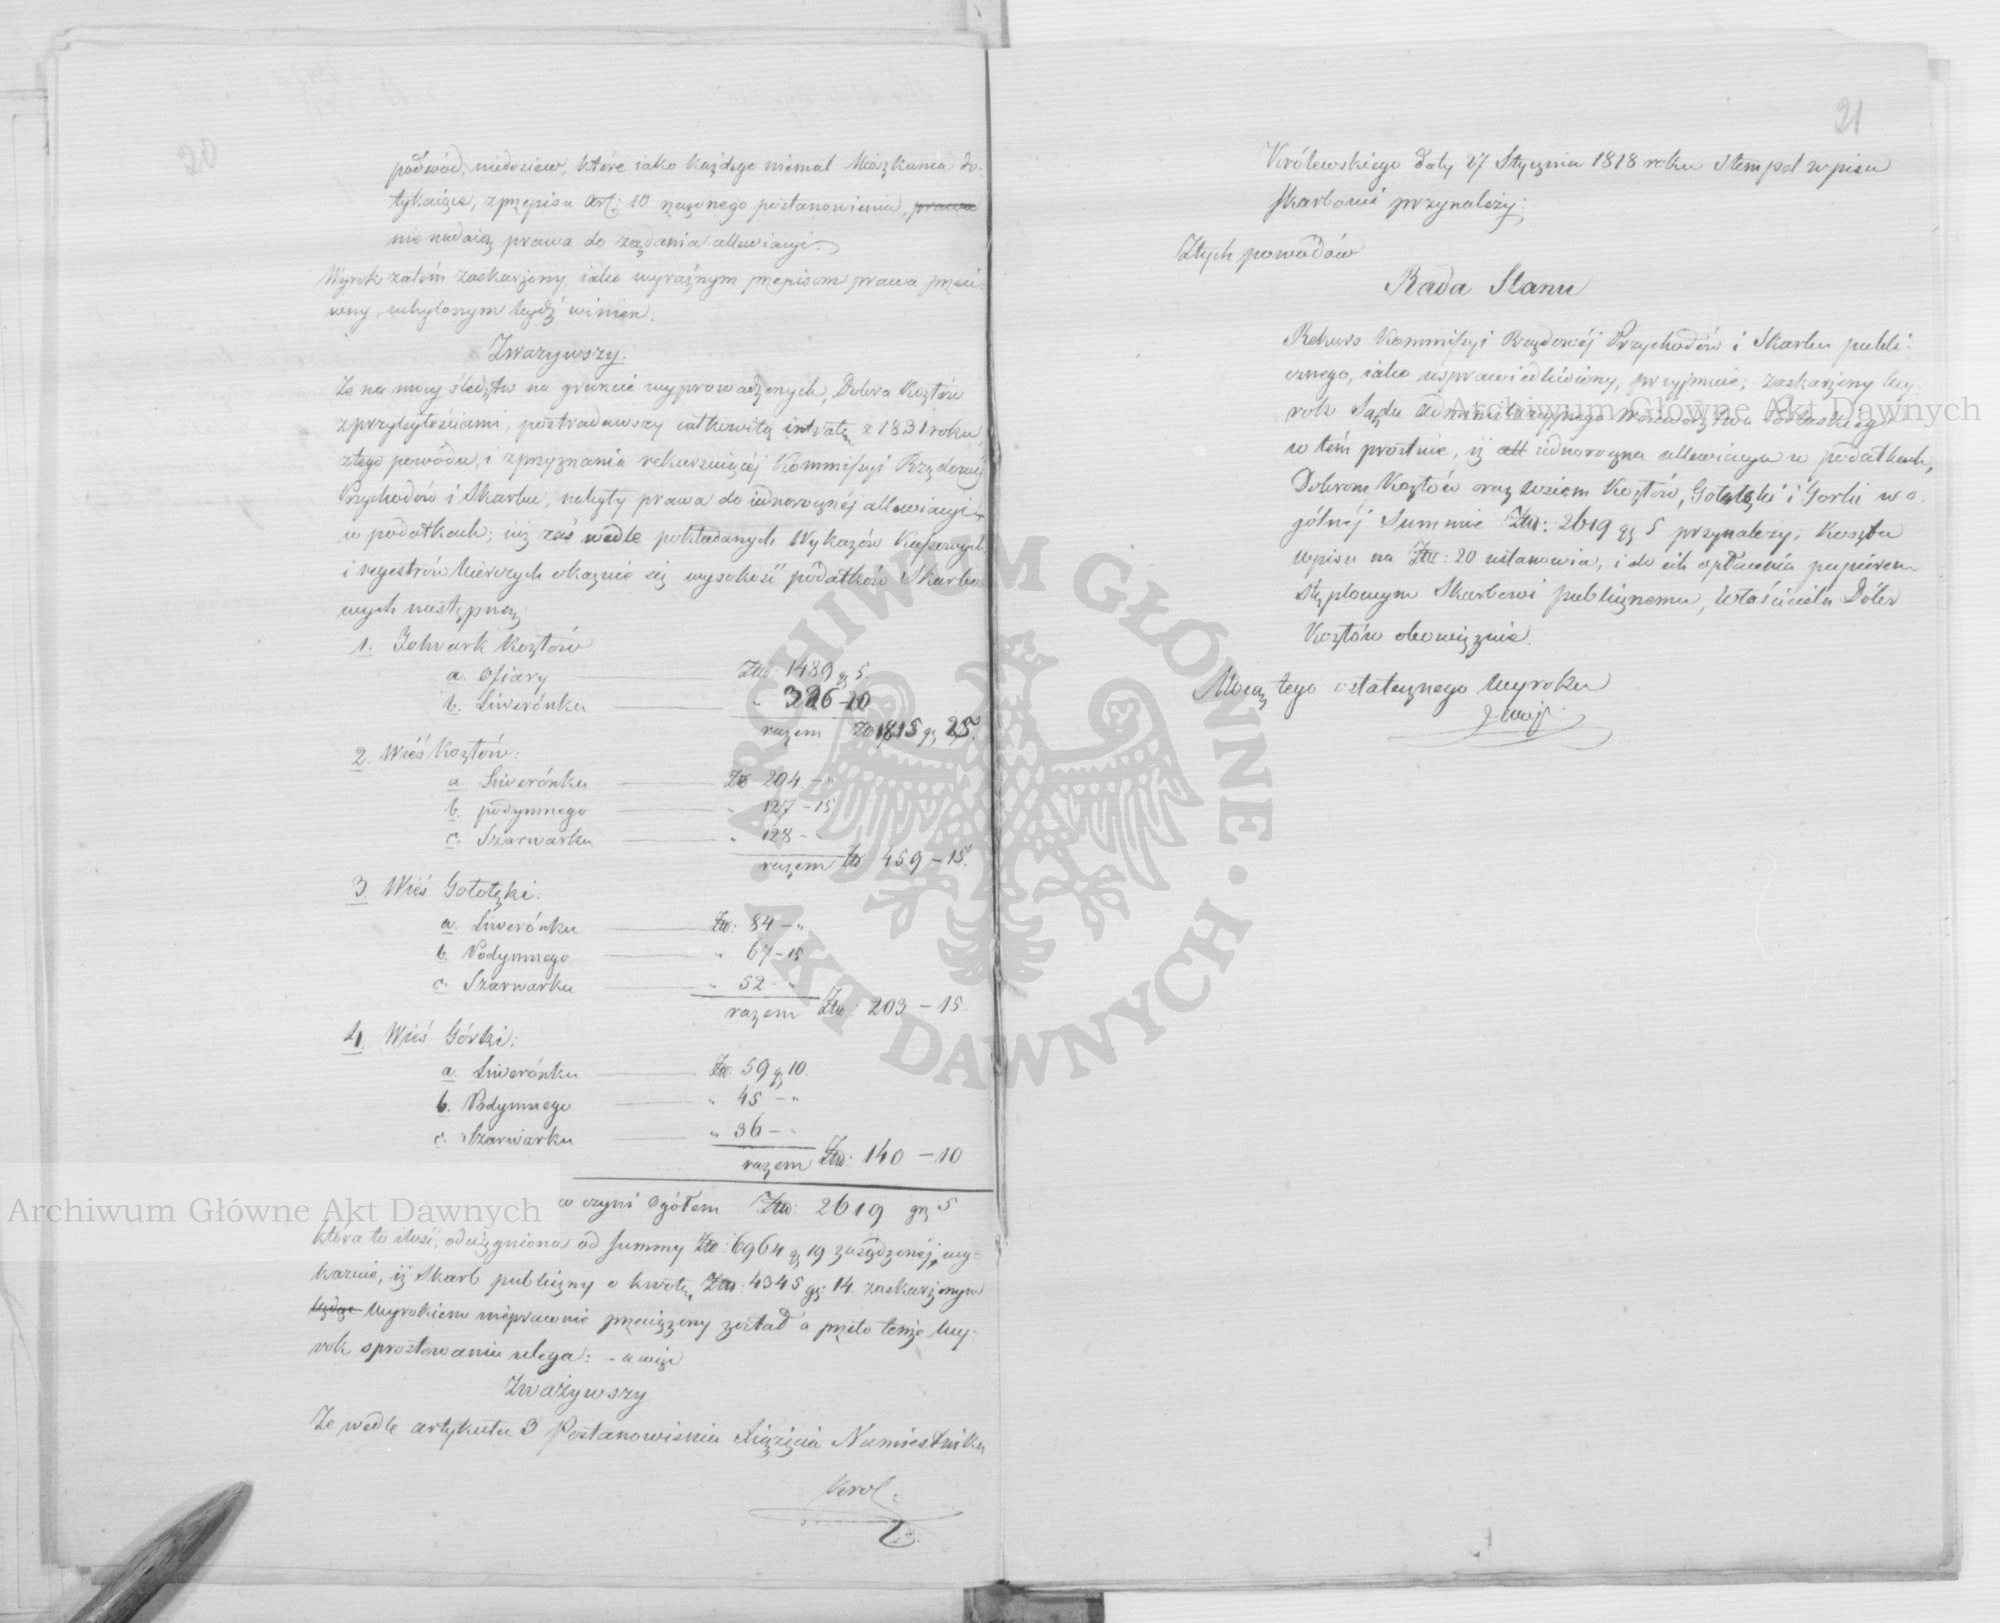 podwód, niedosiew, które iako każdego niemal Mieszkania do-
tykaiące, z przepisu Art: 10 rzeczonego postanowienia, prawa
nie nadaią prawa do żądania allewiacyi.
Wyrok zatém zaskarżony, iako wyraźnym przepisom prawa przeci-
wny, uchylonym bydź winien.
Zważywszy.
Że na mocy śledztw na gruncie wyprowadzonych, Dobra Kosztów
z przyległościami, postradawszy całkowitą intratę z 1831 roku,
z tego powodu, i z przyznania rekursuiącéj Kommissyi Rządowéj
Przychodów i Skarbu, nabyły prawa do iednorocznéj allewiacyi
w podatkach; iż zaś wedle pokładanych Wykazów Kassowych
i regestrów bierczych okazuie się wysokość podatków Skarbo-
wych następna:
1. Folwark Kosztów
a. Ofiary Złp: 1489 gr 5.
b. Liwerónku " 326 - 20
razem Złp 1815 gr 25.
2. Wieś Kosztów:
a. Liwerónku Złp 204 - "
b. podymnego " 127 - 15
c. Szarwarku " 128 - "
razem Złp 459 - 15.
3. Wieś Gołolęki:
a. Liwerónku Złp: 84 - "
b. Podymnego " 67 - 15
c. Szarwarku " 52 - "
razem Złp: 203 - 15.
4. Wieś Górki:
a. Liwerónku Złp: 59 gr 10.
b. Podymnego " 45 - "
c. Szarwarku " 36 - "
razem Złp: 140 - 10
co czyni Ogółem Złp: 2619 gr 5
która to ilość, odciągniona od summy Złp: 6964 gr 19 zasądzonéj, wy-
kazuie, iż Skarb publiczny o kwotę Złp: 4345 gr: 14. zaskarżonym
będąc Wyrokiem nieprawnie przeciążony został a przeto tenże Wy-
rok sprostowaniu ulega: - a więc
Zważywszy
Że wedle artykułu 3 Postanowienia Xiążęcia Namiestnika
Król:
21
Królewskiego Daty 27 Stycznia 1818 roku Stempel wpisu
Skarbowi przynależy:
Z tych powodów
Rada Stanu
Rekurs Kommissyi Rządowéj Przychodów i Skarbu publi-
cznego, iako usprawiedliwiony, przyjmuie; zaskarżony Wy-
rok Sądu Administracyjnego Województwa Podlaskiego
w tém prostuie, iż all iednoroczna allewiacya w podatkach,
Dobrom Kosztów oraz wsiom Kosztów, Gołolęki i Gorki w o-
gólnéj Summie Złp: 2619 gr 5 przynależy; Koszta
wpisu na Złp: 20 ustanowia, i do ich opłacenia papierem
stęplowym Skarbowi publicznemu, Właściciela Dóbr
Kosztów obowięzuie.
Mocą tego ostatecznego Wyroku
Archiwum Główne Akt Dawnych
Archiwum Główne Akt Dawnych
ARCHIWUM GŁÓWNE · AKT DAWNYCH ·